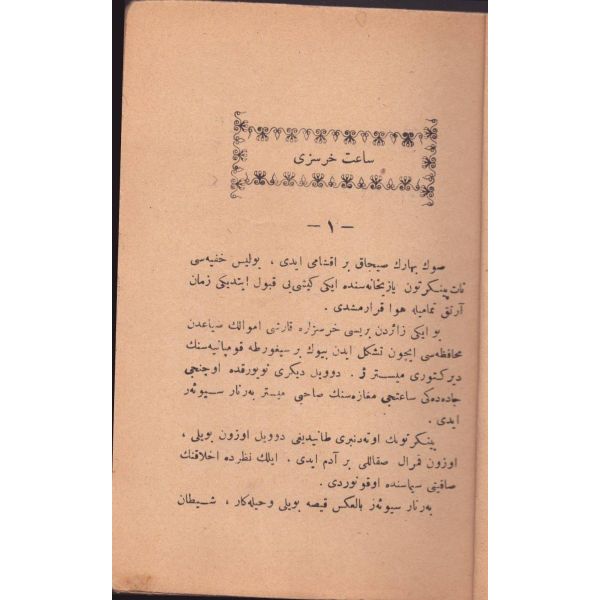 ساعت خرسزی
— ١ —
صوك بهارك صیجاق بر اقشامی ایدی ، پولیس خفیه‌سی
نات پینكرتون یازیخانه‌سنده ایكی كیشی‌یی قبول ایتدیكی زمان
آرتق تمامیله هوا قرارمشدی .
بو ایكی زائردن بریسی خرسزلره قارشی اموالك سیاعدن
محافظه‌سی ایچون تشكل ایدن بیوك بر سیغورطه قومپانیه‌سنك
دیركتوری میستر ژ . دوویل دیكری نویورقده اوچنجی
جاده‌ده‌كی ساعتجی مغازه‌سنك صاحبی میستر به‌رنار سیوئه‌ر
ایدی .
پینكرتونك اوته‌دنبری طانیدیغی دوویل اوزون بویلی ،
اوزون قمرال صقاللی بر آدم ایدی . ایلك نظرده اخلاقنك
صافیتی سیماسنده اوقونوردی .
به‌رنار سیوئه‌ر بالعكس قیصه بویلی وحیله‌كار ، شیطان